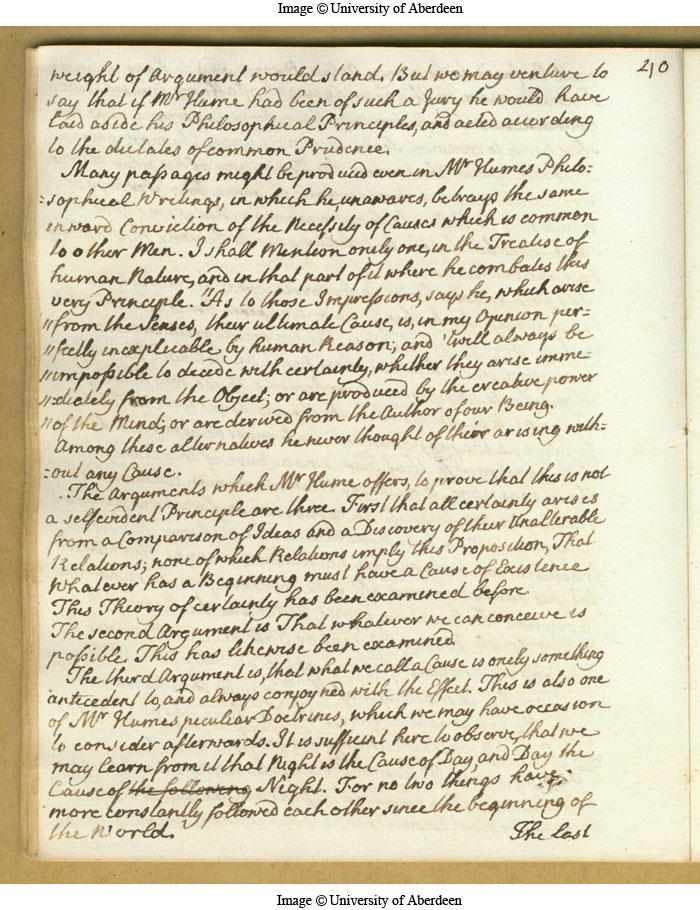 Image © University of Aberdeen
210
weight of Argument would stand. But we may venture to
say that if Mr Hume had been of such a Jury he would have
laid aside his Philosophical Principles, and acted according
to the dictates of common Prudence.
Many passages might be produced even in Mr Humes Philo-
-sophical Writings, in which he, unawares, betrays the same
inward Conviction of the Necessity of Causes which is common
to other Men. I shall Mention onely one, in the Treatise of
human Nature, and in that part of it where he combates this
very Principle. "As to those Impressions, says he, which arise
"from the Senses, their ultimate Cause, is, in my Opinion per-
"fectly inexplicable by human Reason; and 'twill always be
"impossible to decide with certainty, whether they arise imme-
"diately from the Object; or are produced by the creative power
"of the Mind; or are derived from the Author of our Being.
Among these alternatives he never thought of their arising with-
-out any Cause.
The Arguments which Mr Hume offers, to prove that this is not
a selfevident Principle are three. First that all certainty arises
from a Comparison of Ideas and a Discovery of their Unalterable
Relations; none of which Relations imply this Proposition, That
Whatever has a Beginning must have a Cause of Existence
This Theory of certainty has been examined before.
The second Argument is That whatever we can conceive is
possible. This has likewise been examined.
The third Argument is, that what we call a Cause is onely something
antecedent to, and always conjoyned with the Effect. This is also one
of Mr Humes peculiar Doctrines, which we may have occasion
to consider afterwards. It is sufficient here to observe, that we
may learn from it that Night is the Cause of Day, and Day the
Cause of the following Night. For no two things have
more constantly followed each other since the beginning of
the World.
The last
Image © University of Aberdeen